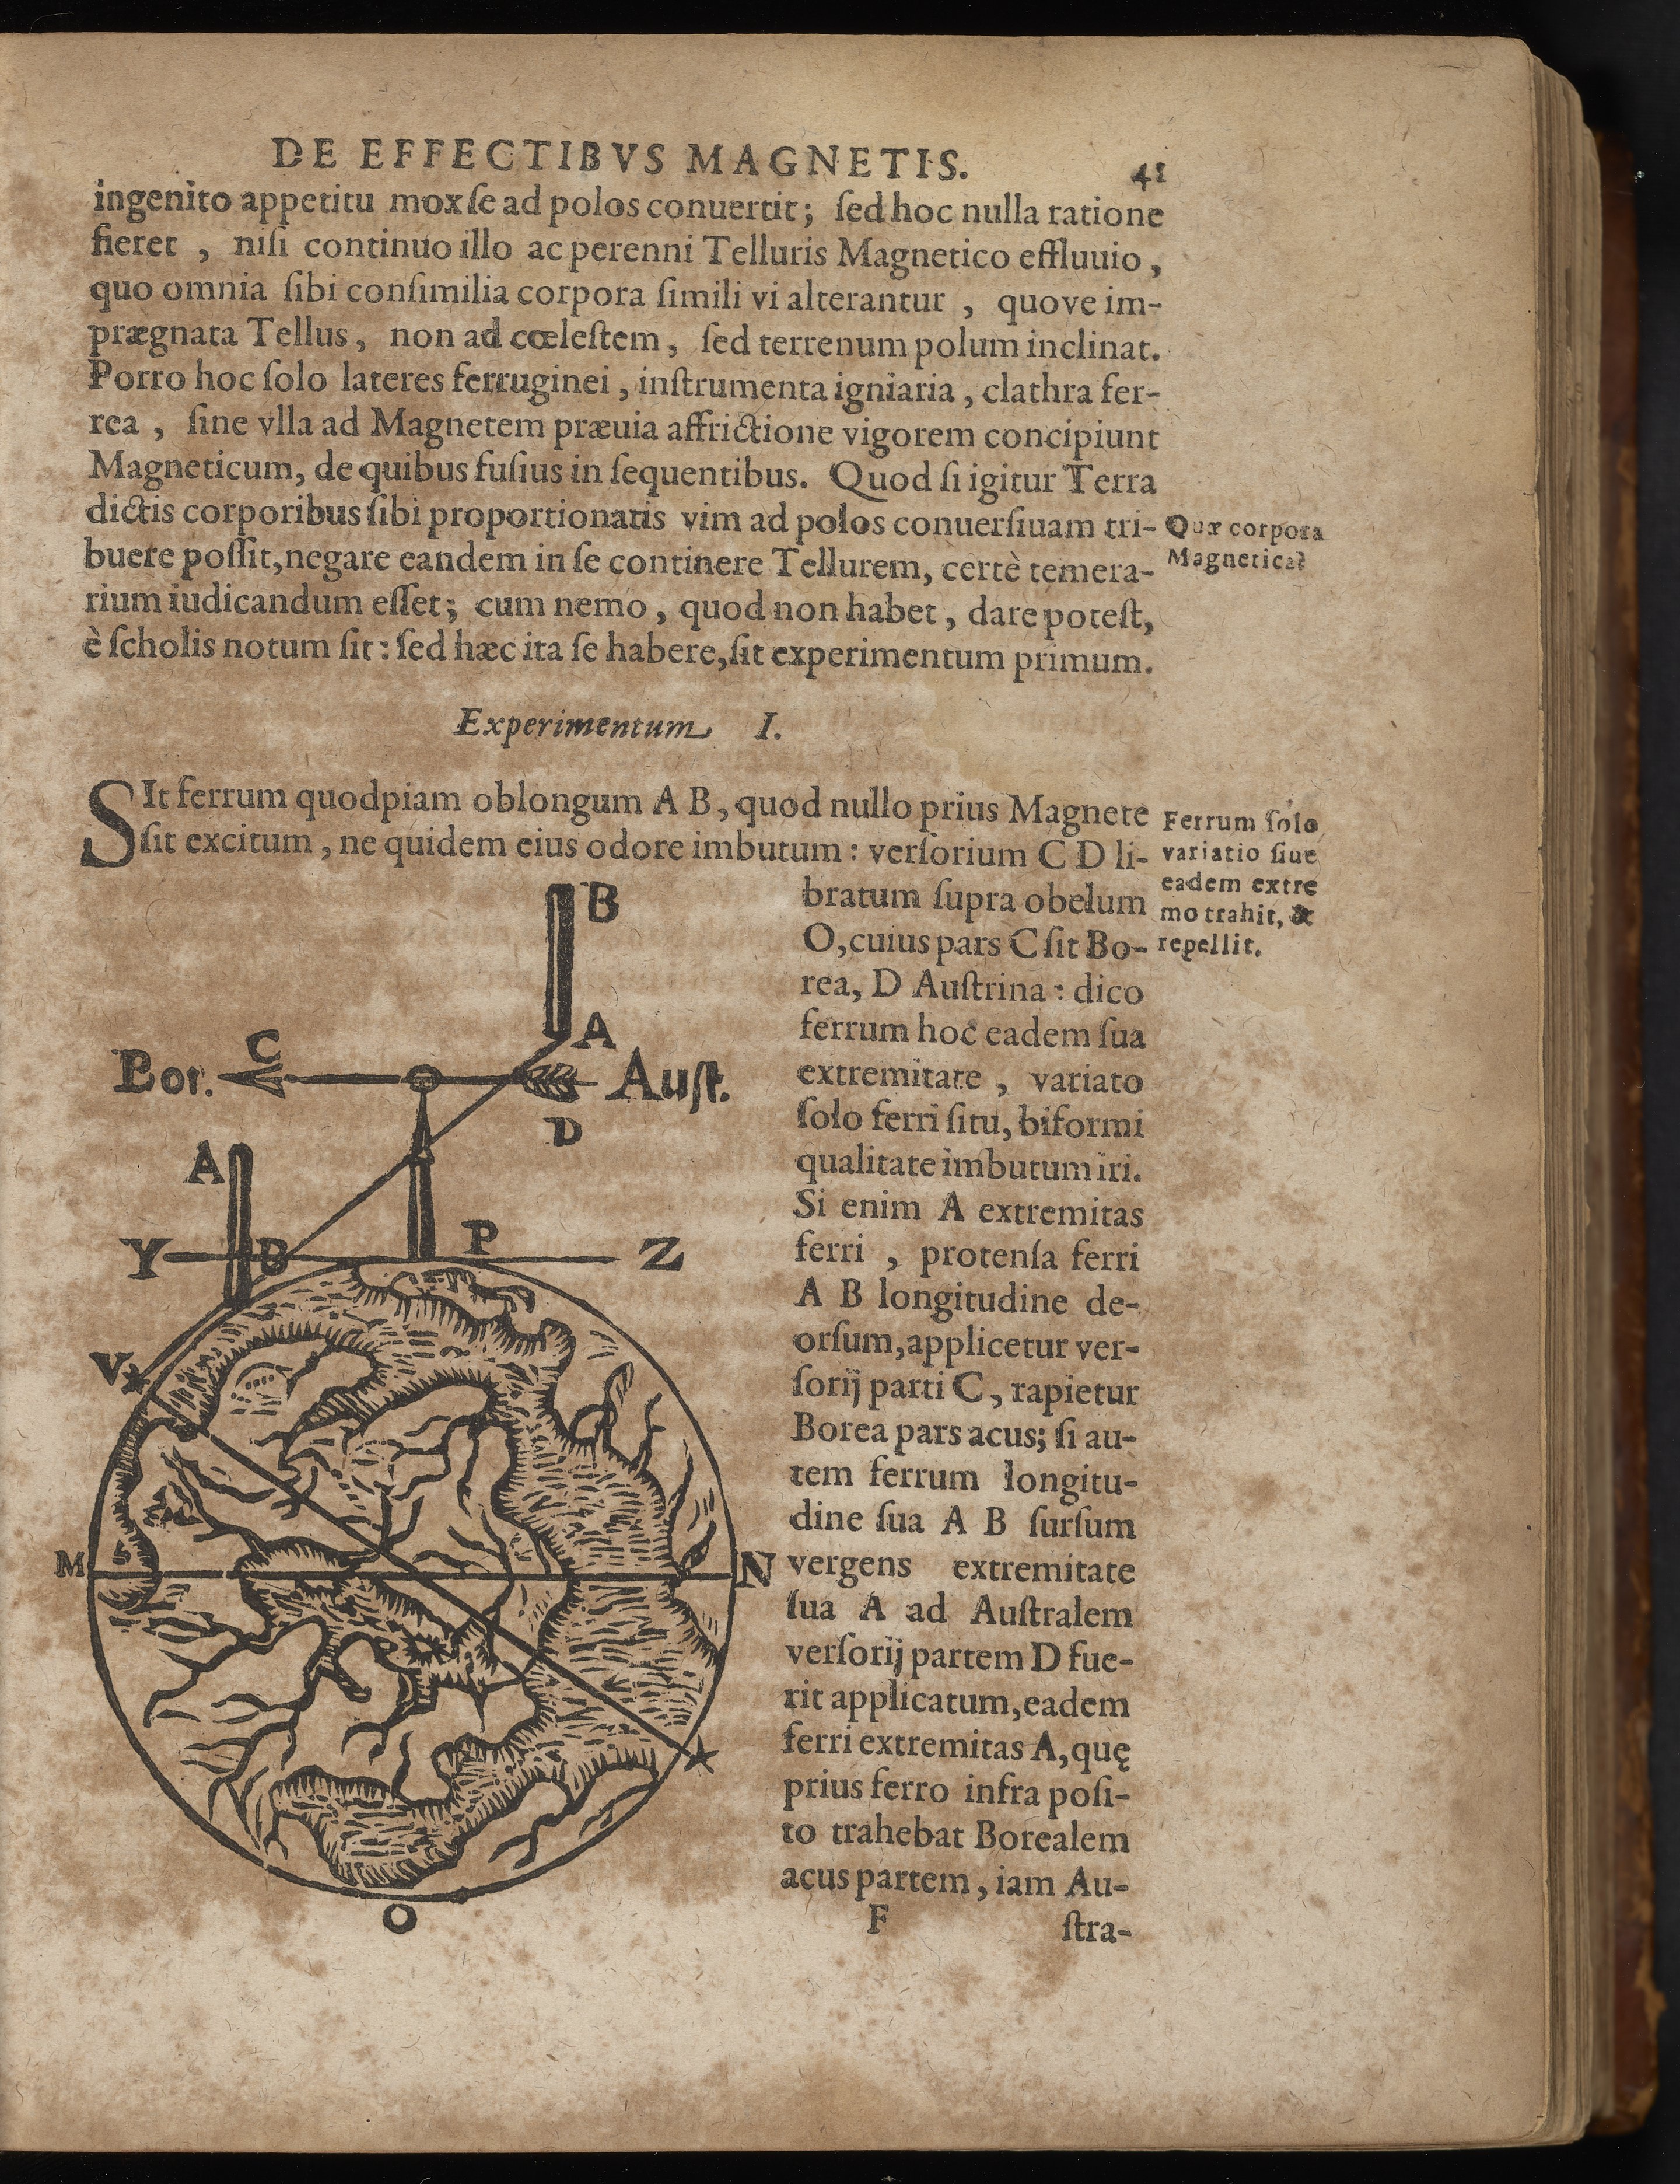 DE EFFECTIBVS MAGNETIS. 41
ingenito appetitu mox ſe ad polos conuertit; ſed hoc nulla ratione
fieret , niſi continuo illo ac perenni Telluris Magnetico effluuio ,
quo omnia ſibi conſimilia corpora ſimili vi alterantur , quove im-
prægnata Tellus , non ad cœleſtem , ſed terrenum polum inclinat.
Porro hoc ſolo lateres ferruginei , inſtrumenta igniaria , clathra fer-
rea , ſine vlla ad Magnetem præuia affrictione vigorem concipiunt
Magneticum, de quibus fuſius in ſequentibus. Quod ſi igitur Terra
dictis corporibus ſibi proportionatis vim ad polos conuerſiuam tri-
buere poſſit, negare eandem in ſe continere Tellurem, certè temera-
rium iudicandum eſſet; cum nemo , quod non habet , dare poteſt,
è ſcholis notum ſit : ſed hæc ita ſe habere, ſit experimentum primum.
Quæ corpora
Magnetica?
Experimentum I.
SIt ferrum quodpiam oblongum A B, quod nullo prius Magnete
ſit excitum , ne quidem eius odore imbutum : verſorium C D li-
bratum ſupra obelum
O, cuius pars C ſit Bo-
rea, D Auſtrina : dico
ferrum hoc eadem ſua
extremitate , variato
ſolo ferri ſitu, biformi
qualitate imbutum iri.
Si enim A extremitas
ferri , protenſa ferri
A B longitudine de-
orſum, applicetur ver-
ſorij parti C , rapietur
Borea pars acus; ſi au-
tem ferrum longitu-
dine ſua A B ſurſum
vergens extremitate
ſua A ad Auſtralem
verſorij partem D fue-
rit applicatum, eadem
ferri extremitas A, quę
prius ferro infra poſi-
to trahebat Borealem
acus partem , iam Au-
F ſtra-
Ferrum ſolo
variatio ſiue
eadem extre
mo trahit, &
repellit.
B
A
C
Bor.
Auſt.
D
A
Y
B
P
Z
V
M
S
N
O